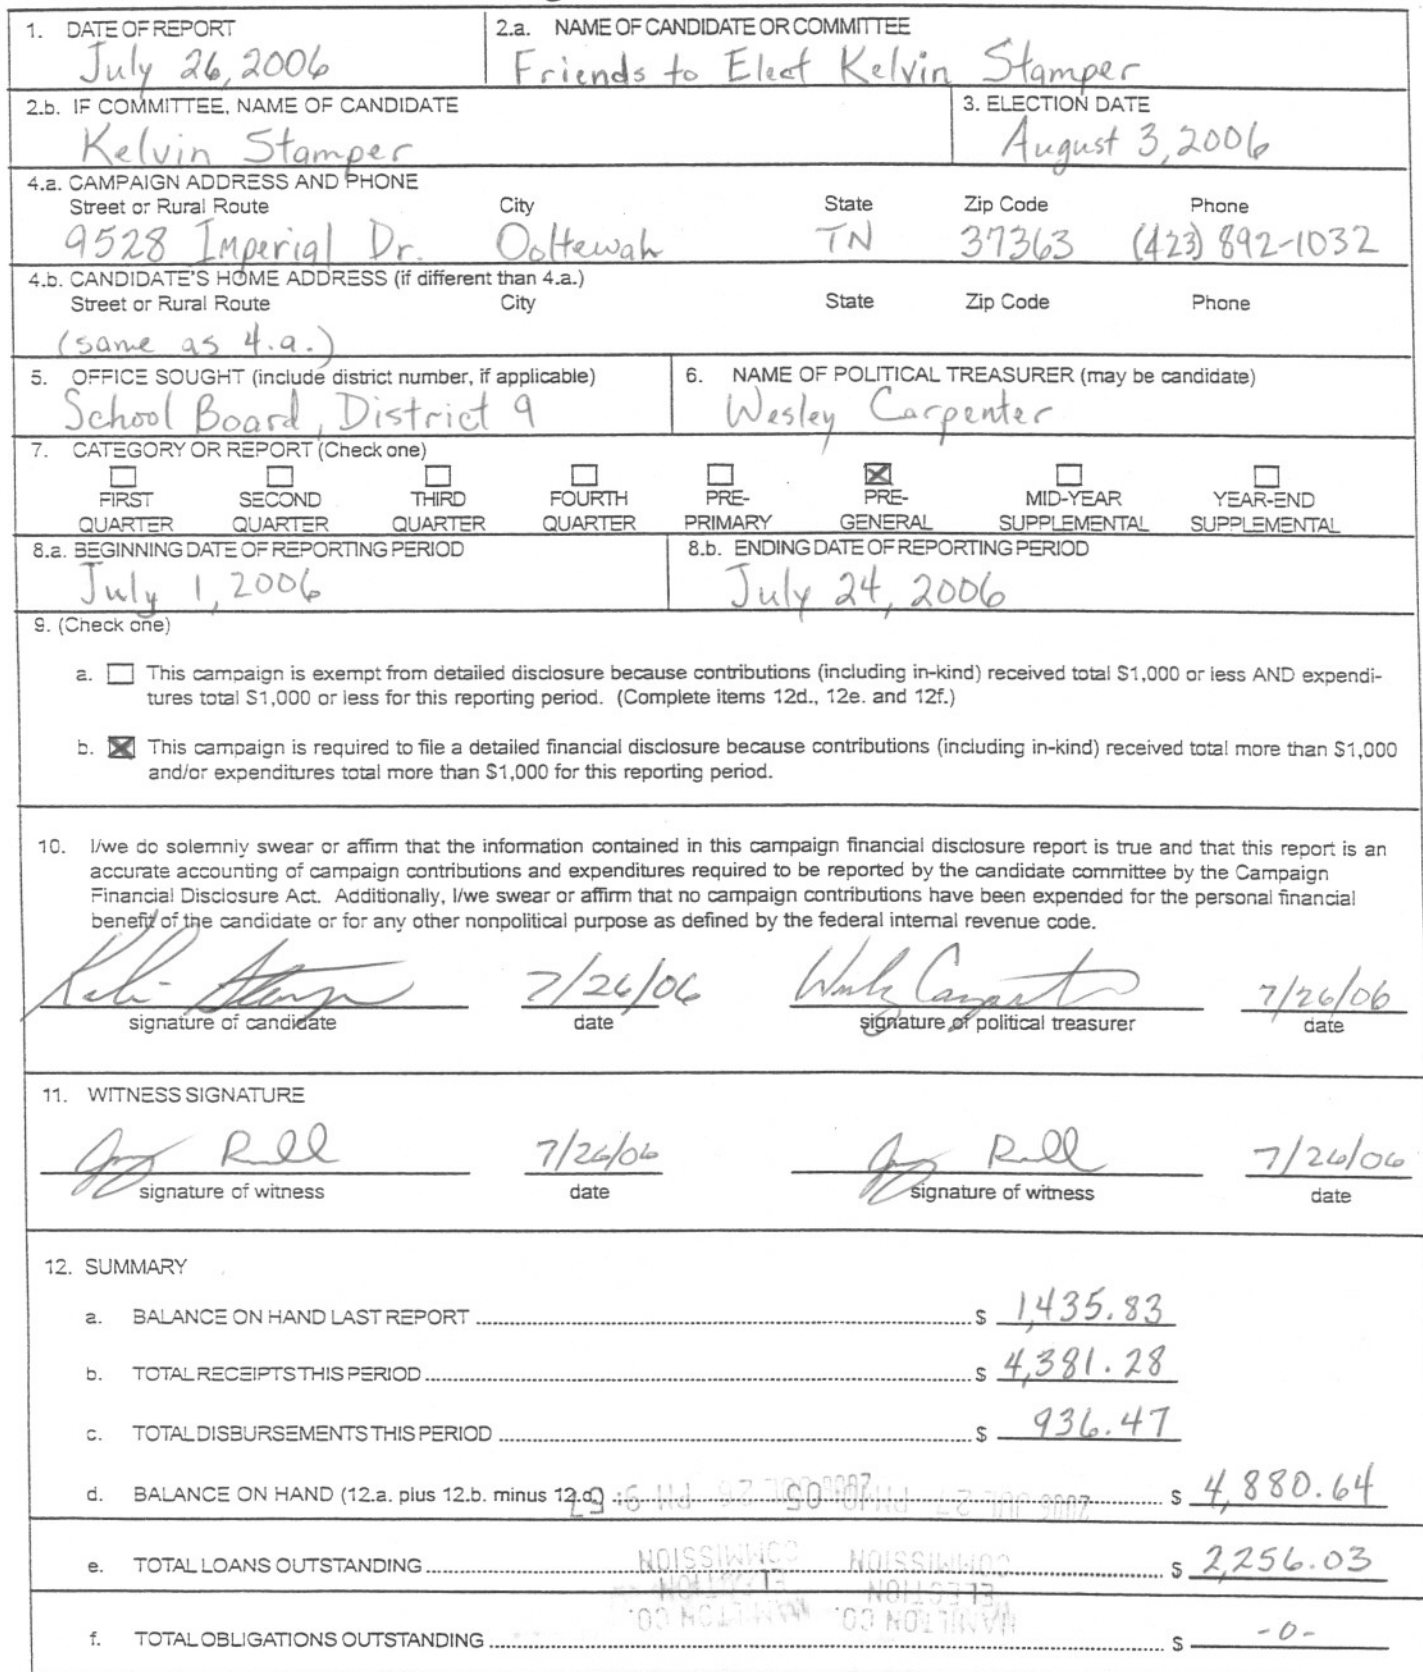 1. DATE OF REPORT
July 26, 2006
2.a. NAME OF CANDIDATE OR COMMITTEE
Friends to Elect Kelvin Stamper
2.b. IF COMMITTEE, NAME OF CANDIDATE
Kelvin Stamper
3. ELECTION DATE
August 3, 2006
4.a. CAMPAIGN ADDRESS AND PHONE
Street or Rural Route City State Zip Code Phone
9528 Imperial Dr. Ooltewah TN 37363 (423) 892-1032
4.b. CANDIDATE'S HOME ADDRESS (if different than 4.a.)
Street or Rural Route City State Zip Code Phone
(same as 4.a.)
5. OFFICE SOUGHT (include district number, if applicable)
School Board, District 9
6. NAME OF POLITICAL TREASURER (may be candidate)
Wesley Carpenter
7. CATEGORY OR REPORT (Check one)
FIRST QUARTER
SECOND QUARTER
THIRD QUARTER
FOURTH QUARTER
PRE-PRIMARY
PRE-GENERAL
MID-YEAR SUPPLEMENTAL
YEAR-END SUPPLEMENTAL
8.a. BEGINNING DATE OF REPORTING PERIOD
July 1, 2006
8.b. ENDING DATE OF REPORTING PERIOD
July 24, 2006
9. (Check one)
a. This campaign is exempt from detailed disclosure because contributions (including in-kind) received total $1,000 or less AND expendi-
tures total $1,000 or less for this reporting period. (Complete items 12d., 12e. and 12f.)
b. This campaign is required to file a detailed financial disclosure because contributions (including in-kind) received total more than $1,000
and/or expenditures total more than $1,000 for this reporting period.
10. I/we do solemnly swear or affirm that the information contained in this campaign financial disclosure report is true and that this report is an
accurate accounting of campaign contributions and expenditures required to be reported by the candidate committee by the Campaign
Financial Disclosure Act. Additionally, I/we swear or affirm that no campaign contributions have been expended for the personal financial
benefit of the candidate or for any other nonpolitical purpose as defined by the federal internal revenue code.
7/26/06 7/26/06
signature of candidate date signature of political treasurer date
11. WITNESS SIGNATURE
7/26/06 7/26/06
signature of witness date signature of witness date
12. SUMMARY
a. BALANCE ON HAND LAST REPORT $ 1,435.83
b. TOTAL RECEIPTS THIS PERIOD $ 4,381.28
c. TOTAL DISBURSEMENTS THIS PERIOD $ 936.47
d. BALANCE ON HAND (12.a. plus 12.b. minus 12.c.) $ 4,880.64
e. TOTAL LOANS OUTSTANDING $ 2,256.03
f. TOTAL OBLIGATIONS OUTSTANDING $ -0-
HAMILTON CO.
ELECTION
COMMISSION